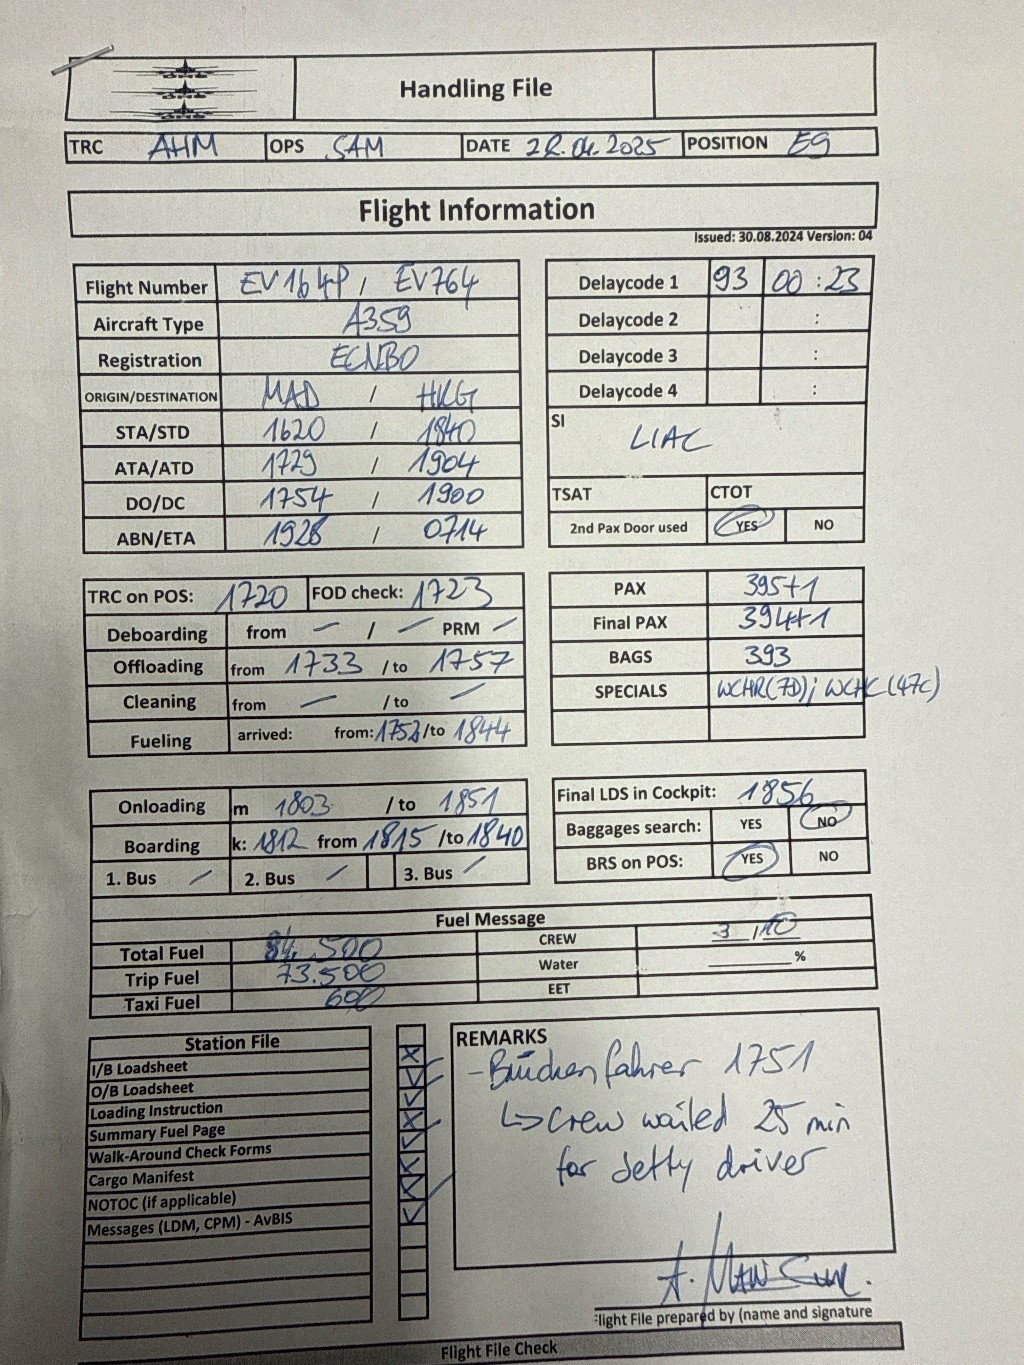 Handling File
TRC AHM OPS SAM DATE 22.04.2025 POSITION E9
Flight Information
Issued: 30.08.2024 Version: 04
Flight Number EV164P / EV764
Aircraft Type A359
Registration ECNBO
ORIGIN/DESTINATION MAD / HKG
STA/STD 1620 / 1840
ATA/ATD 1729 / 1904
DO/DC 1754 / 1900
ABN/ETA 1928 / 0714
Delaycode 1 93 00:23
Delaycode 2 :
Delaycode 3 :
Delaycode 4 :
SI LIAC
TSAT CTOT
2nd Pax Door used YES NO
TRC on POS: 1720 FOD check: 1723
Deboarding from – / – PRM –
Offloading from 1733 /to 1757
Cleaning from – /to –
Fueling arrived: from: 1752 /to 1844
PAX 395+1
Final PAX 394+1
BAGS 393
SPECIALS WCHR(7D); WCHC(47C)
Onloading m 1803 /to 1851
Boarding k: 1812 from 1815 /to 1840
1. Bus – 2. Bus – 3. Bus –
Final LDS in Cockpit: 1856
Baggages search: YES NO
BRS on POS: YES NO
Fuel Message
Total Fuel 84.500 CREW 3 / 10
Trip Fuel 73.500 Water %
Taxi Fuel 600 EET
Station File
I/B Loadsheet
O/B Loadsheet
Loading Instruction
Summary Fuel Page
Walk-Around Check Forms
Cargo Manifest
NOTOC (if applicable)
Messages (LDM, CPM) - AvBIS
REMARKS
- Brückenfahrer 1751
↳ Crew waited 25 min
for Jetty driver
A.
light File prepared by (name and signature
Flight File Check